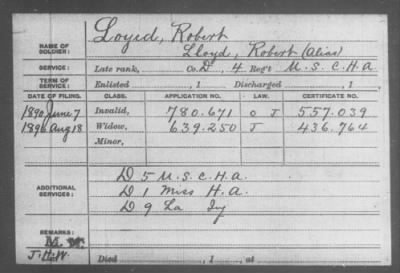 NAME OF SOLDIER: Loyed, Robert
Lloyd, Robert (Alias)
SERVICE: Late rank, Co. D, 4 Reg't U. S. C. H. A.
TERM OF SERVICE: Enlisted , 1 Discharged , 1
DATE OF FILING. CLASS. APPLICATION NO. LAW. CERTIFICATE NO.
1890 June 7 Invalid, 780.671 O J 557.039
1896 Aug 18 Widow, 639.250 J 436.764
Minor,
ADDITIONAL SERVICES: D 5 U. S. C. H. A.
D 1 Miss H. A.
D 9 La Iy
REMARKS:
Died , 1 , at